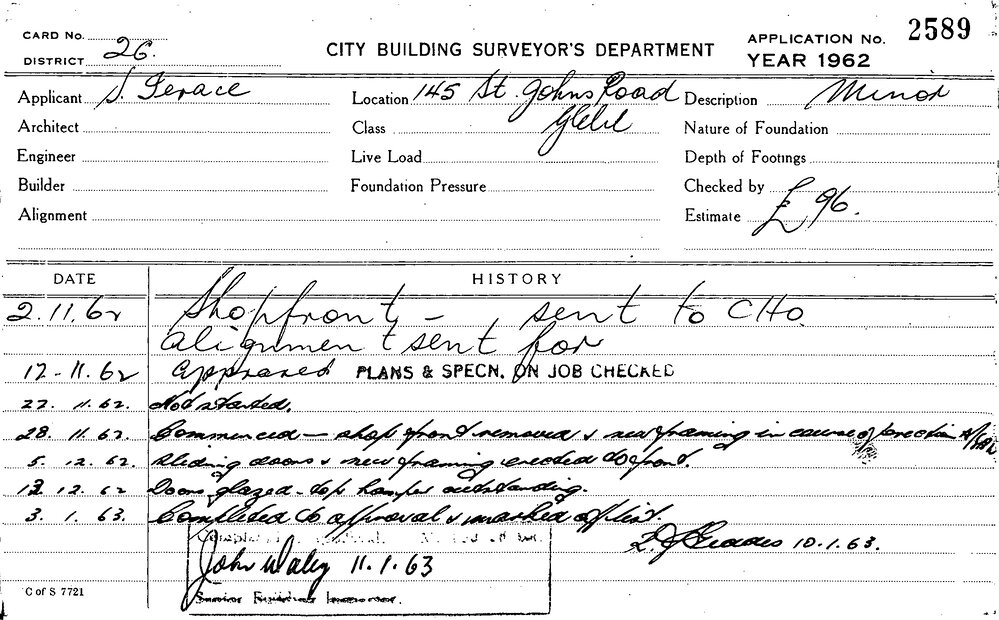 CARD No.
DISTRICT 26.
CITY BUILDING SURVEYOR'S DEPARTMENT
APPLICATION No. 2589
YEAR 1962
Applicant S. Ferace
Location 145 St. Johns Road
Glebe
Description Minor
Architect
Class
Nature of Foundation
Engineer
Live Load
Depth of Footings
Builder
Foundation Pressure
Checked by
Alignment
Estimate £ 96.
DATE HISTORY
2.11.62 Shopfront – sent to CHO.
alignment sent for
12-11.62 approved PLANS & SPECN. ON JOB CHECKED
22. 11. 62. Not started.
28. 11. 62. Commenced – shop front removed & new framing in course of erection
5. 12. 62. Sliding doors & new framing erected to front.
12. 12. 62 Doors glazed – top hamper outstanding.
3. 1. 63. Completed to approval & marked off list.
10.1.63.
John Waley 11.1.63
Senior Building Inspector.
C of S 7721